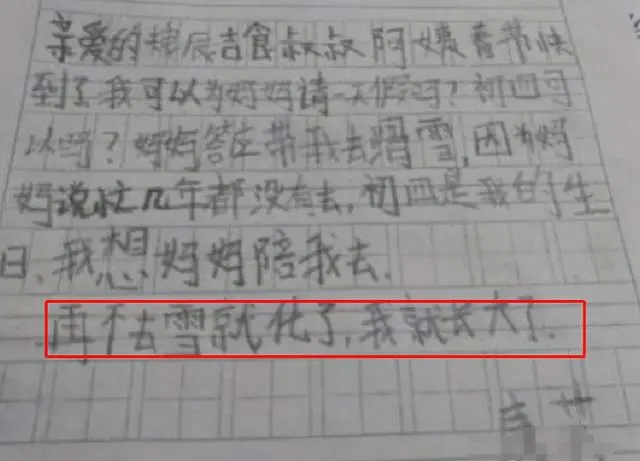 亲爱的辣辰吉食叔叔阿姨春节快
到了我可以为妈妈请一天假吗?初四可
以吗?妈妈答应带我去滑雪,因为妈
妈说忙几年都没有去,初四是我的生
日,我想妈妈陪我去.
再不去雪就化了,我就长大了.